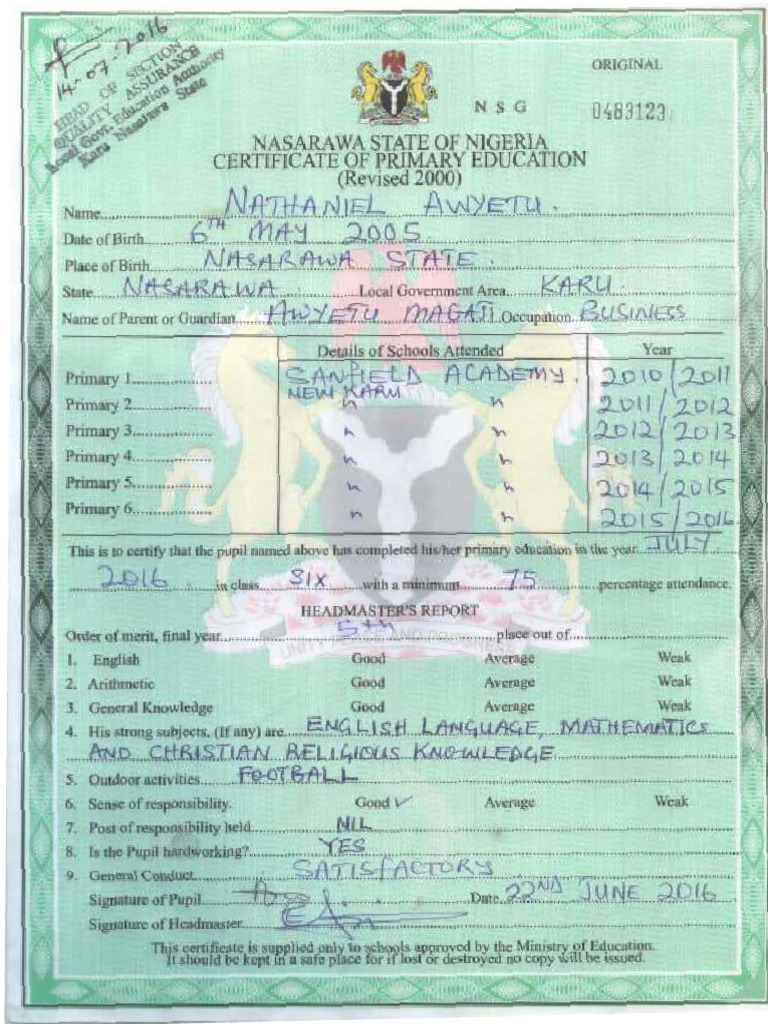 14-07-2016
HEAD OF SECTION
QUALITY ASSURANCE
Local Govt. Education Authority
Karu Nasarawa State
ORIGINAL
NSG 0483123
NASARAWA STATE OF NIGERIA
CERTIFICATE OF PRIMARY EDUCATION
(Revised 2000)
Name NATHANIEL AWYETU.
Date of Birth 6TH MAY 2005
Place of Birth NASARAWA STATE.
State NASARAWA. Local Government Area KARU.
Name of Parent or Guardian AWYETU MAGAJI Occupation BUSINESS
Details of Schools Attended Year
Primary 1 SANFIELD ACADEMY. 2010/2011
NEW KARU
Primary 2 " " 2011/2012
Primary 3 " " 2012/2013
Primary 4 " " 2013/2014
Primary 5 " " 2014/2015
Primary 6 " " 2015/2016
This is to certify that the pupil named above has completed his/her primary education in the year JULY
2016 in class SIX with a minimum 75 percentage attendance.
HEADMASTER'S REPORT
Order of merit, final year 5th place out of
1. English Good Average Weak
2. Arithmetic Good Average Weak
3. General Knowledge Good Average Weak
4. His strong subjects, (If any) are ENGLISH LANGUAGE, MATHEMATICS
AND CHRISTIAN RELIGIOUS KNOWLEDGE
5. Outdoor activities FOOTBALL
6. Sense of responsibility. Good ✓ Average Weak
7. Post of responsibility held NIL
8. Is the Pupil hardworking? YES
9. General Conduct SATISFACTORY
Signature of Pupil Date 22ND JUNE 2016
Signature of Headmaster
This certificate is supplied only to schools approved by the Ministry of Education.
It should be kept in a safe place for if lost or destroyed no copy will be issued.